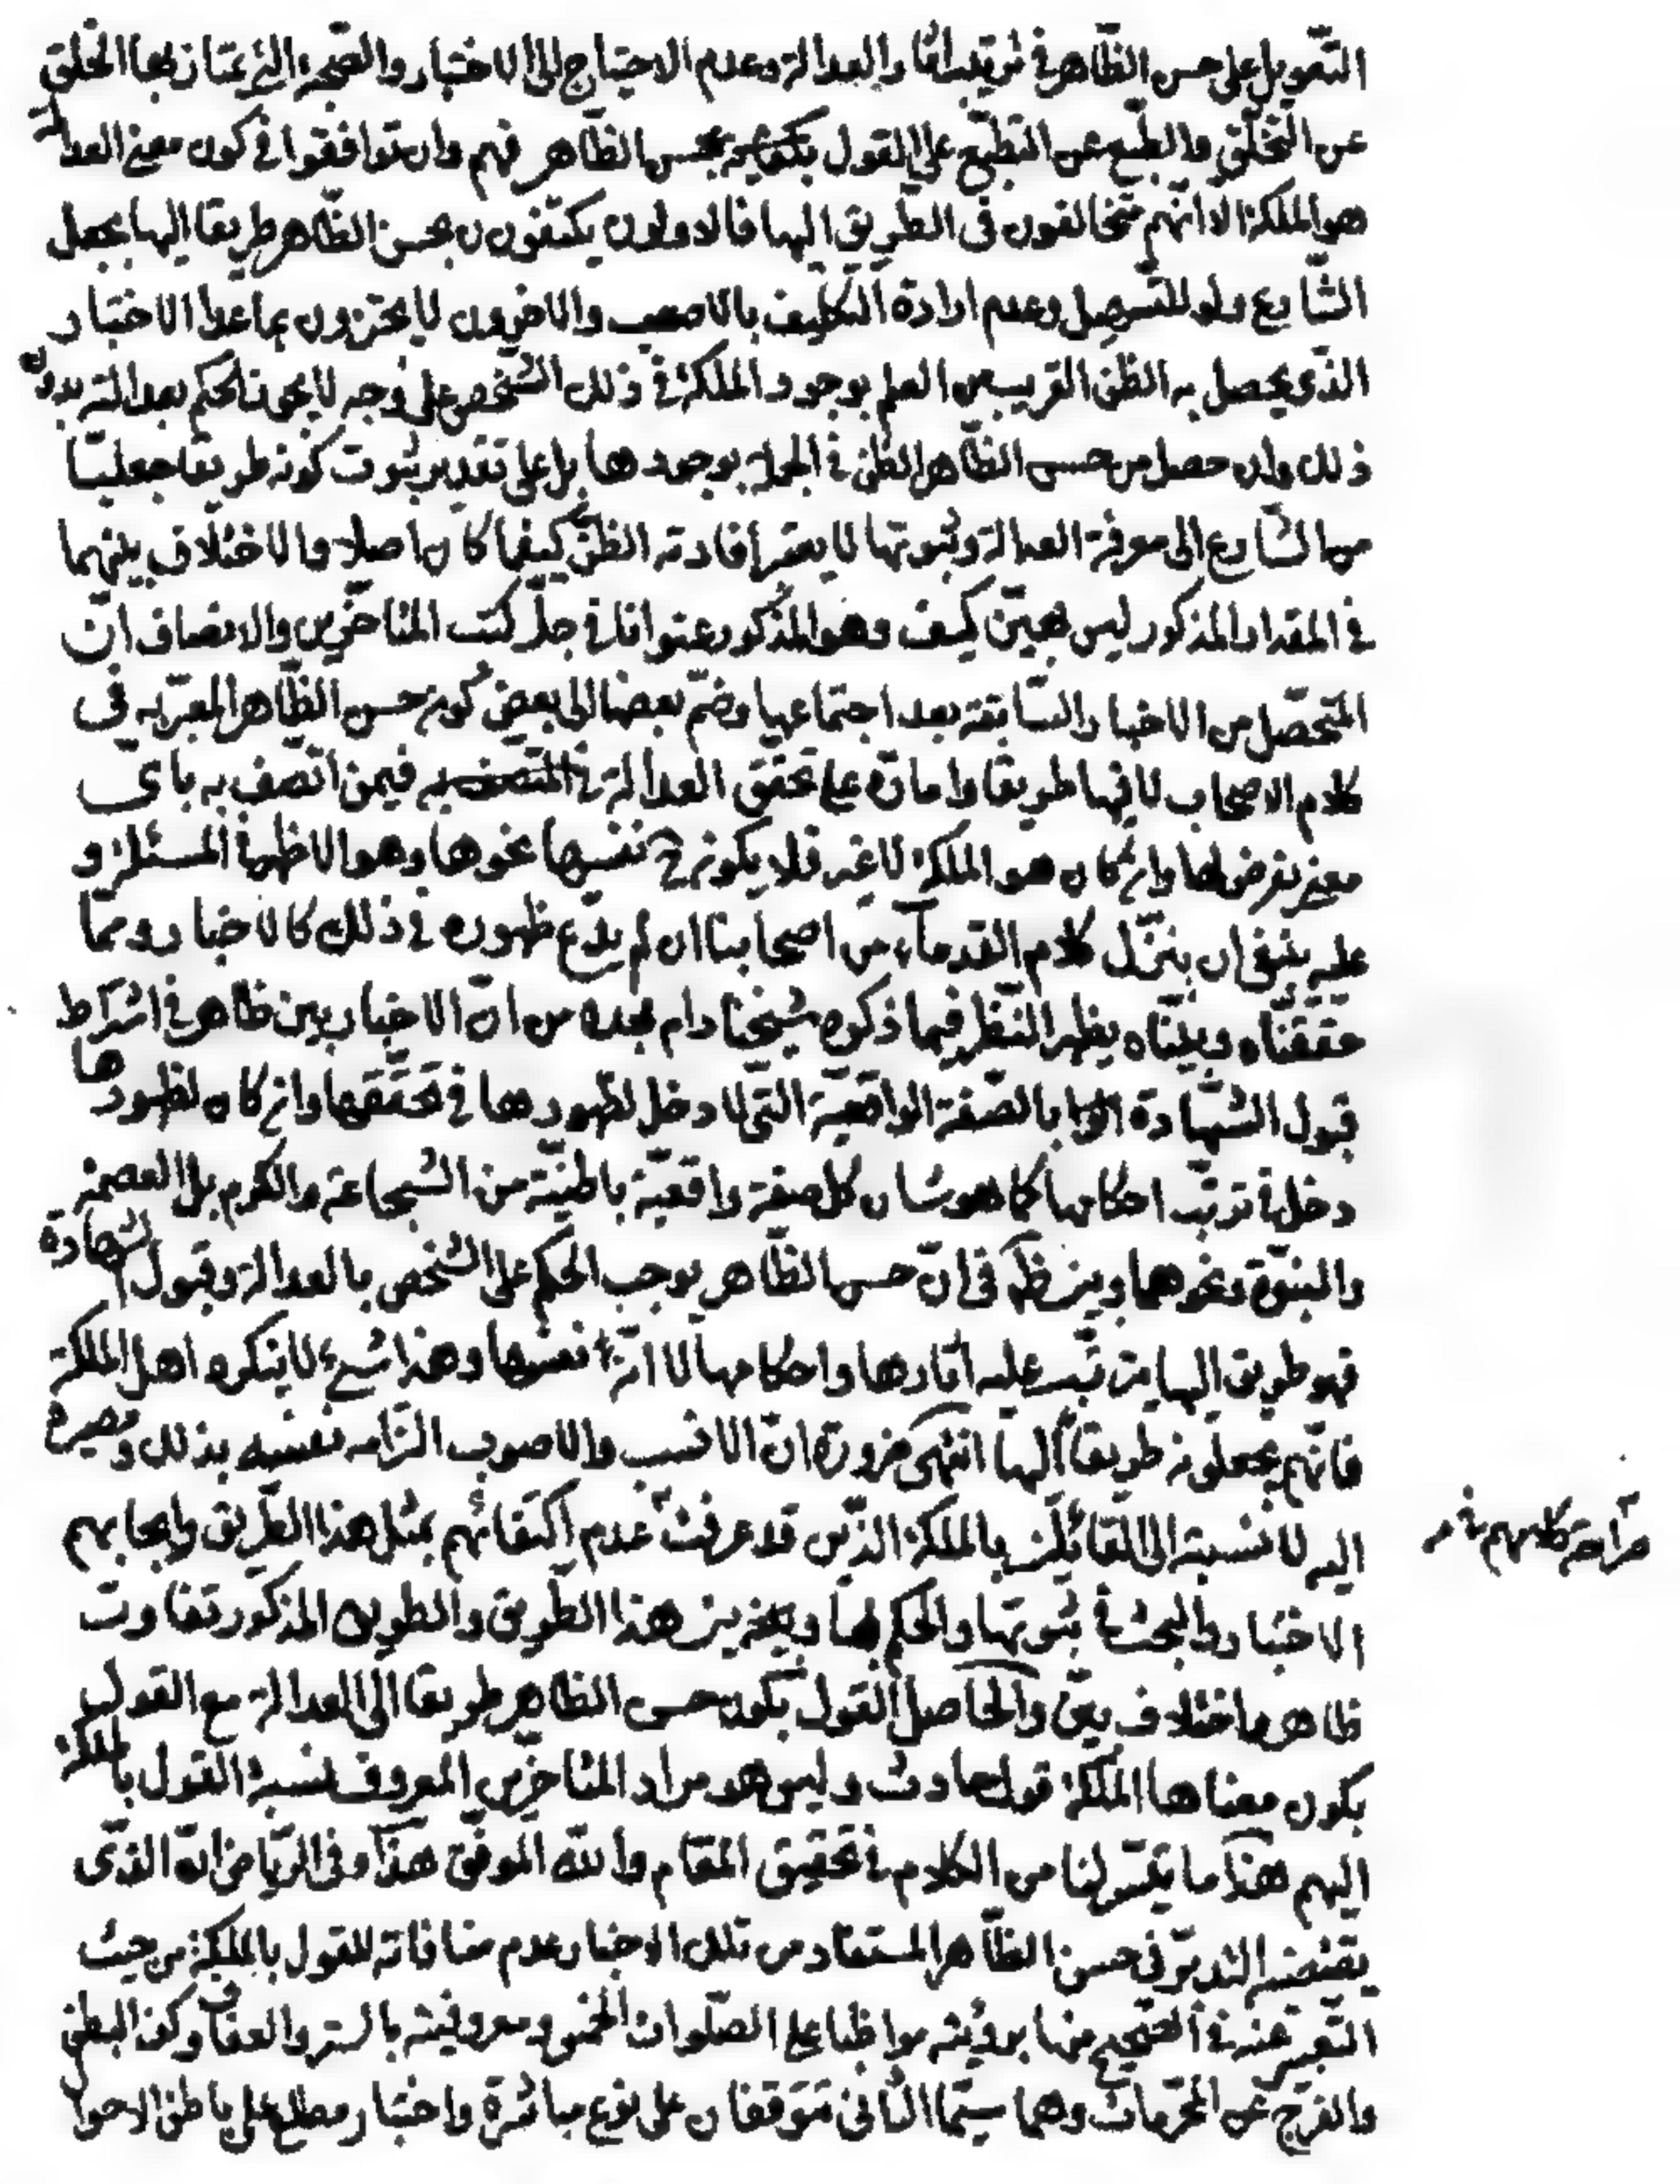 التّعويل على حسن الظّاهر في ترتيب اثار العدالة وعدم الاحتياج الى الاختبار والصّحبة الّتي يمتاز بها الخلق
عن التّخلّق والطّبع عن التطبّع على القول بحسن الظّاهر فهم وان توافقوا في كون معنى العدالة
هو الملكة الا انّهم متخالفون في الطّريق اليها فالاولون يكتفون بحسن الظّاهر طريقا اليها بجعل
الشّارع ولو للتسهيل وعدم ارادة التكليف بالاصعب والاخرون لا يجتزون بما عدا الاختبار
الذّى يحصل به الظنّ القريب من العلم بوجود الملكة في ذلك الشّخص على وجه لا يجوز الحكم بعدالته بدون
ذلك وان حصل من حسن الظّاهر الظنّ في الجملة بوجودها بل على تقدير ثبوت كونه طريقا جعليّا
من الشّارع الى معرفة العدالة وثبوتها لا يعتبر افادته الظنّ كيفما كان اصلا والاختلاف بينهما
في المقدار المذكور ليس بهيّن كيف وهو المذكور عنوانا في جلّ كتب المتاخّرين والانصاف انّ
المتحصّل من الاخبار السّابقة بعد اجتماعها وضمّ بعضها الى بعض كون حسن الظّاهر المعبّر به في
كلام الاصحاب لا فيها طريقا وامارة على تحقّق العدالة فيمن اتّصف به باى
معنى نفرض لها وان كان هو الملكة لا غير فلا يكون ح نفسها نحوها وهو الاظهر المسئلة و
عليه ينبغى ان ينزّل كلام القدماء من اصحابنا ان لم يدّع ظهوره في ذلك كالاخبار وممّا
حقّقناه وبيّناه يظهر النّظر فيما ذكره شيخنا دام مجده من انّ الاخبار بين ظاهر في اشتراط
قبول الشّهادة بالصّفة الواقعيّة التّى لا دخل لظهورها في تحقّقها وان كان لظهورها
دخل في ترتّب احكامها كما هو شان كل صفة واقعيّة باطنيّة من الشّجاعة والكرم بل العصمة
والنبوّة ونحوهما وبين ظ في انّ حسن الظّاهر يوجب الحكم على الشّخص بالعدالة وقبول الشهادة
فهو طريق اليها يترتّب عليه اثارها واحكامها لا انّه نفسها وهذا شىء لا ينكره اهل الملكة
فانّهم يجعلونه طريقا اليها انتهى ضرورة انّ الانسب والاصوب الزامه نفسه بذلك ومصيره
اليه لا نسبته الى القائلين بالملكة الذّين قد عرفت عدم اكتفائهم بمثل هذا الطّريق وايجابهم
صراحة كلامهم في
الاختبار والبحث في ثبوتها والحكم بها وبين هذا الطّريق والطريق المذكور تفاوت
ظاهر واختلاف بيّن والحاصل القول بكون حسن الظاهر طريقا الى العدالة مع القول
بكون معناها الملكة قول حادث وليس هو مراد المتاخّرين المعروف نسبة القول بالملكة
اليهم هذا ما تيسّر لنا من الكلام في تحقيق المقام والله الموفّق هذا وفي الرّياض انّه الذّى
يقتضيه التدبّر في حسن الظّاهر المستفاد من تلك الاخبار عدم منافاته للقول بالملكة من حيث
التّعبير عنه في الصّحيح منها برؤيته مواظبا على الصّلوات الخمس ومعروفيته بالستر والعفاف وكف البطن
والفرج عن المحرّمات وهما سيّما الثّانى متوقفان على نوع مباشرة واختبار مطلع على باطن الاحوا